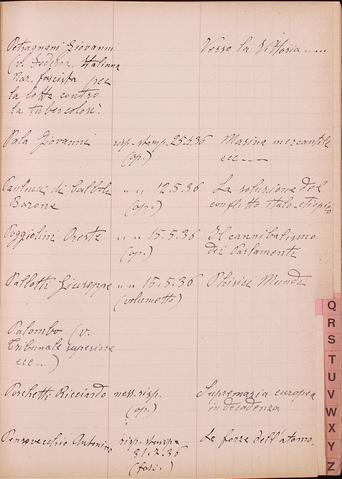 Petragnani Giovanni Verso la Vittoria.....
(v. Federaz. Italiana
Naz. fascista per
la lotta contro
la tubercolosi.
Pala Giovanni risp. stamp. 25.5.36 Marina mercantile
(op.) ecc ----
Paulucci di Calboli " " 12.5.36 La soluzione del
Barone (op.) conflitto italo-etiopico
Poggiolini Oreste " " 15.5.36 Il cannibalismo
(op.) dei Parlamenti
Pallotti Giuseppe " 15.5.36
(volumetto)
Palombo (v.
Tribunale superiore
ecc ...)
Porchetti Ricciardo risp. Supremazia europea
(op.) in decadenza
Antonino risp. stampa Le forze dell'atomo.
31.7.36
(fasc.)
Q
R
S
T
U
V
W
X
Y
Z